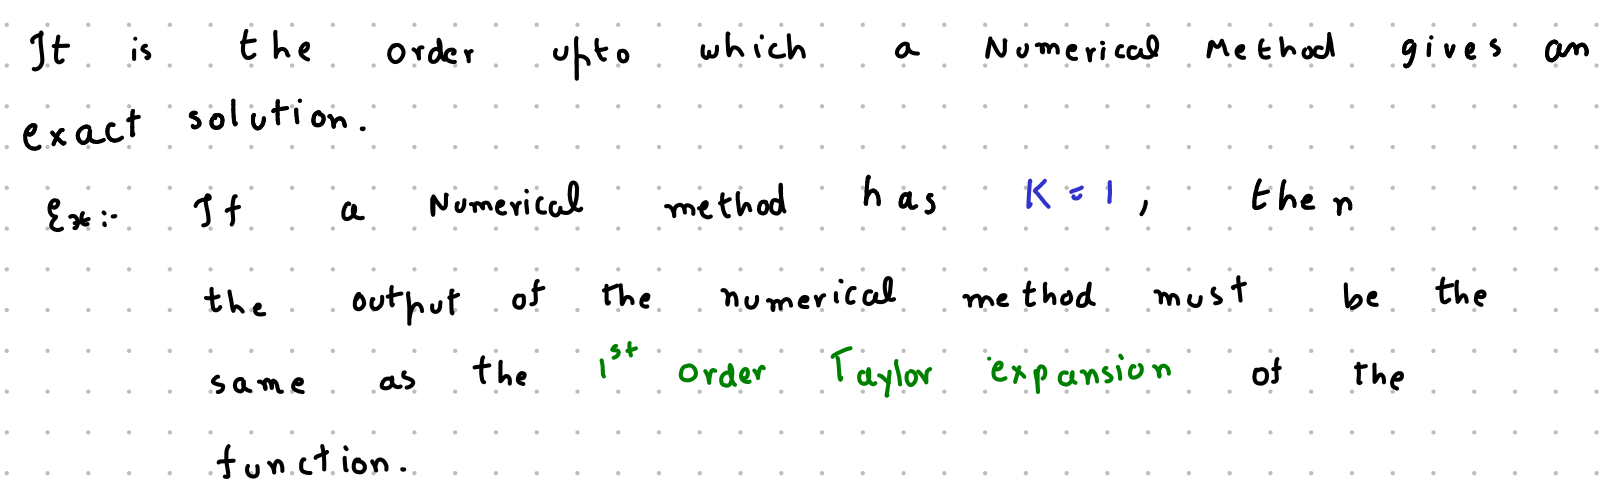 It is the order upto which a Numerical Method gives an
exact solution.
Ex:- If a Numerical method has K = 1, then
the output of the numerical method must be the
same as the 1st order Taylor expansion of the
function.